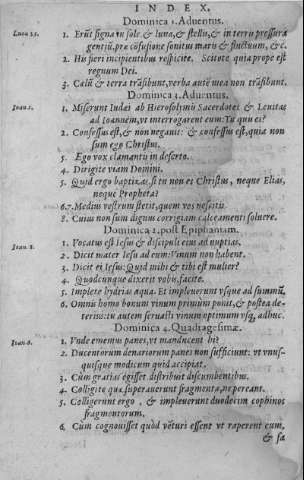 INDEX.
Dominica 1. Aduentus.
Luca 21. 1. Erūt signa in sole & luna, & stellis, & in terris pressura
gentiū, præ cōfusione sonitus maris & fluctuum, &c.
2. His fieri incipientibus respicite. Scitote quia prope est
regnum Dei.
3. Cælū & terra trāsibunt, verba autē mea non trāsibunt.
Dominica 4. Aduentus.
Ioan. 1. 1. Miserunt Iudæi ab Hierosolymis Sacerdotes & Leuitas
ad Ioannem, vt interrogarent eum: Tu quis es?
2. Confessus est, & non negauit: & confessus est, quia non
sum ego Christus.
3. Ego vox clamantis in deserto.
4. Dirigite viam Domini.
5. Quid ergo baptizas, si tu non es Christus, neque Elias,
neque Propheta?
6.7. Medius vestrum stetit, quem vos nescitis.
8. Cuius non sum dignus corrigiam calceamenti soluere.
Dominica 2. post Epiphaniam.
Ioan. 2. 1. Vocatus est Iesus & discipuli eius ad nuptias.
2. Dicit mater Iesu ad eum: Vinum non habent.
3. Dicit ei Iesus: Quid mihi & tibi est mulier?
4. Quodcunque dixerit vobis, facite.
5. Implete hydrias aqua. Et impleuerunt vsque ad summū.
6. Omnis homo bonum vinum primum ponit, & postea de-
terius: tu autem seruasti vinum optimum vsq; adhuc.
Dominica 4. Quadragesimæ.
Ioan. 6. 1. Vnde ememus panes, vt manducent hi?
2. Ducentorum denariorum panes non sufficiunt: vt vnus-
quisque modicum quid accipiat.
3. Cùm gratias egisset distribuit discumbentibus.
4. Colligite quæ superauerunt fragmenta, ne pereant.
5. Collegerunt ergo, & impleuerunt duodecim cophinos
fragmentorum.
6. Cùm cognouisset quòd vēturi essent vt raperent eum,
& fa